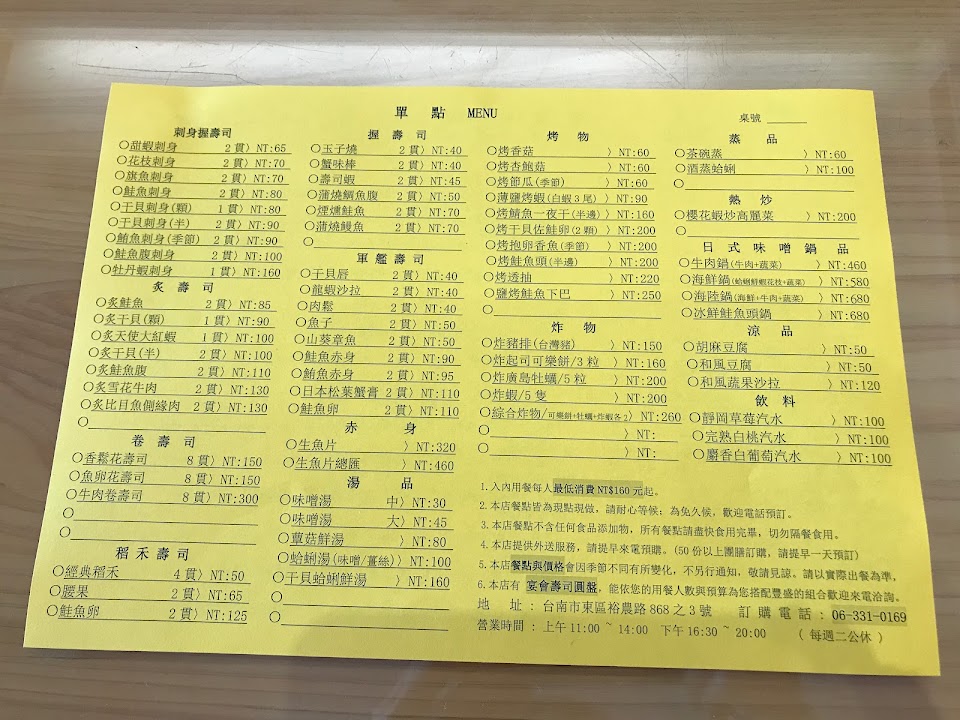 單 點 MENU
桌號
刺身握壽司
○甜蝦刺身 2 貫〉NT:65
○花枝刺身 2 貫〉NT:70
○旗魚刺身 2 貫〉NT:70
○鮭魚刺身 2 貫〉NT:80
○干貝刺身(顆) 1 貫〉NT:80
○干貝刺身(半) 2 貫〉NT:90
○鮪魚刺身(季節) 2 貫〉NT:90
○鮭魚腹刺身 2 貫〉NT:100
○牡丹蝦刺身 1 貫〉NT:160
炙 壽 司
○炙鮭魚 2 貫〉NT:85
○炙干貝(顆) 1 貫〉NT:90
○炙天使大紅蝦 1 貫〉NT:100
○炙干貝(半) 2 貫〉NT:100
○炙鮭魚腹 2 貫〉NT:110
○炙雪花牛肉 2 貫〉NT:130
○炙比目魚側緣肉 2 貫〉NT:130
○
卷 壽 司
○香鬆花壽司 8 貫〉NT:150
○魚卵花壽司 8 貫〉NT:150
○牛肉卷壽司 8 貫〉NT:300
○
○
稻禾壽司
○經典稻禾 4 貫〉NT:50
○腰果 2 貫〉NT:65
○鮭魚卵 2 貫〉NT:125
握 壽 司
○玉子燒 2 貫〉NT:40
○蟹味棒 2 貫〉NT:40
○壽司蝦 2 貫〉NT:45
○蒲燒鯛魚腹 2 貫〉NT:50
○煙燻鮭魚 2 貫〉NT:70
○蒲燒鰻魚 2 貫〉NT:70
○
軍艦壽司
○干貝唇 2 貫〉NT:40
○龍蝦沙拉 2 貫〉NT:40
○肉鬆 2 貫〉NT:40
○魚子 2 貫〉NT:50
○山葵章魚 2 貫〉NT:50
○鮭魚赤身 2 貫〉NT:90
○鮪魚赤身 2 貫〉NT:95
○日本松葉蟹膏 2 貫〉NT:110
○鮭魚卵 2 貫〉NT:110
赤 身
○生魚片 〉NT:320
○生魚片總匯 〉NT:460
湯 品
○味噌湯 中〉NT:30
○味噌湯 大〉NT:45
○蕈菇鮮湯 〉NT:80
○蛤蜊湯(味噌/薑絲)〉NT:100
○干貝蛤蜊鮮湯 〉NT:160
○
○
烤 物
○烤香菇 〉NT:60
○烤杏鮑菇 〉NT:60
○烤節瓜(季節) 〉NT:60
○薄鹽烤蝦(白蝦 3 尾) 〉NT:90
○烤鯖魚一夜干(半邊) 〉NT:160
○烤干貝佐鮭卵(2 顆) 〉NT:200
○烤抱卵香魚(季節) 〉NT:200
○烤鮭魚頭(半邊) 〉NT:200
○烤透抽 〉NT:220
○鹽烤鮭魚下巴 〉NT:250
○
炸 物
○炸豬排(台灣豬) 〉NT:150
○炸起司可樂餅/3 粒 〉NT:160
○炸廣島牡蠣/5 粒 〉NT:200
○炸蝦/5 隻 〉NT:200
○綜合炸物/可樂餅+牡蠣+炸蝦各 2〉NT:260
○ 〉NT:
○ 〉NT:
蒸 品
○茶碗蒸 〉NT:60
○酒蒸蛤蜊 〉NT:100
○
熱 炒
○櫻花蝦炒高麗菜 〉NT:200
○
日式味噌鍋品
○牛肉鍋(牛肉+蔬菜) 〉NT:460
○海鮮鍋(蛤蜊鮮蝦花枝+蔬菜) 〉NT:580
○海陸鍋(海鮮+牛肉+蔬菜) 〉NT:680
○冰鮮鮭魚頭鍋 〉NT:680
涼 品
○胡麻豆腐 〉NT:50
○和風豆腐 〉NT:50
○和風蔬果沙拉 〉NT:120
飲 料
○靜岡草莓汽水 〉NT:100
○完熟白桃汽水 〉NT:100
○麝香白葡萄汽水 〉NT:100
1. 入內用餐每人最低消費 NT$160 元起。
2. 本店餐點皆為現點現做，請耐心等候；為免久候，歡迎電話預訂。
3. 本店餐點不含任何食品添加物，所有餐點請盡快食用完畢，切勿隔餐食用。
4. 本店提供外送服務，請提早來電預購。(50 份以上團膳訂購，請提早一天預訂)
5. 本店餐點與價格會因季節不同有所變化，不另行通知，敬請見諒。請以實際出餐為準，
6. 本店有 宴會壽司圓盤，能依您的用餐人數與預算為您搭配豐盛的組合歡迎來電洽詢。
地 址：台南市東區裕農路 868 之 3 號 訂 購 電 話：06-331-0169
營業時間：上午 11:00 ~ 14:00 下午 16:30 ~ 20:00 (每週二公休)